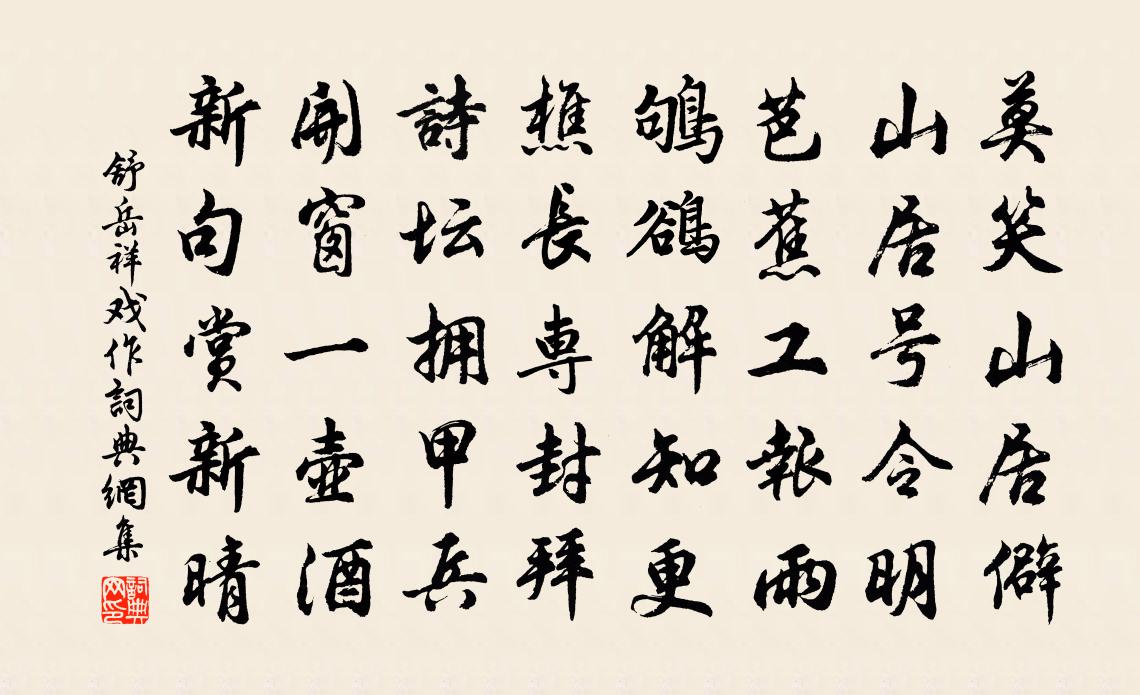 莫笑山居僻
山居号令明
芭蕉工報雨
鴝鵒解知更
樵長専封拜
詩坛拥甲兵
開窗一壺酒
新句赏新晴
舒岳祥戏作詞典網集
詞典网印